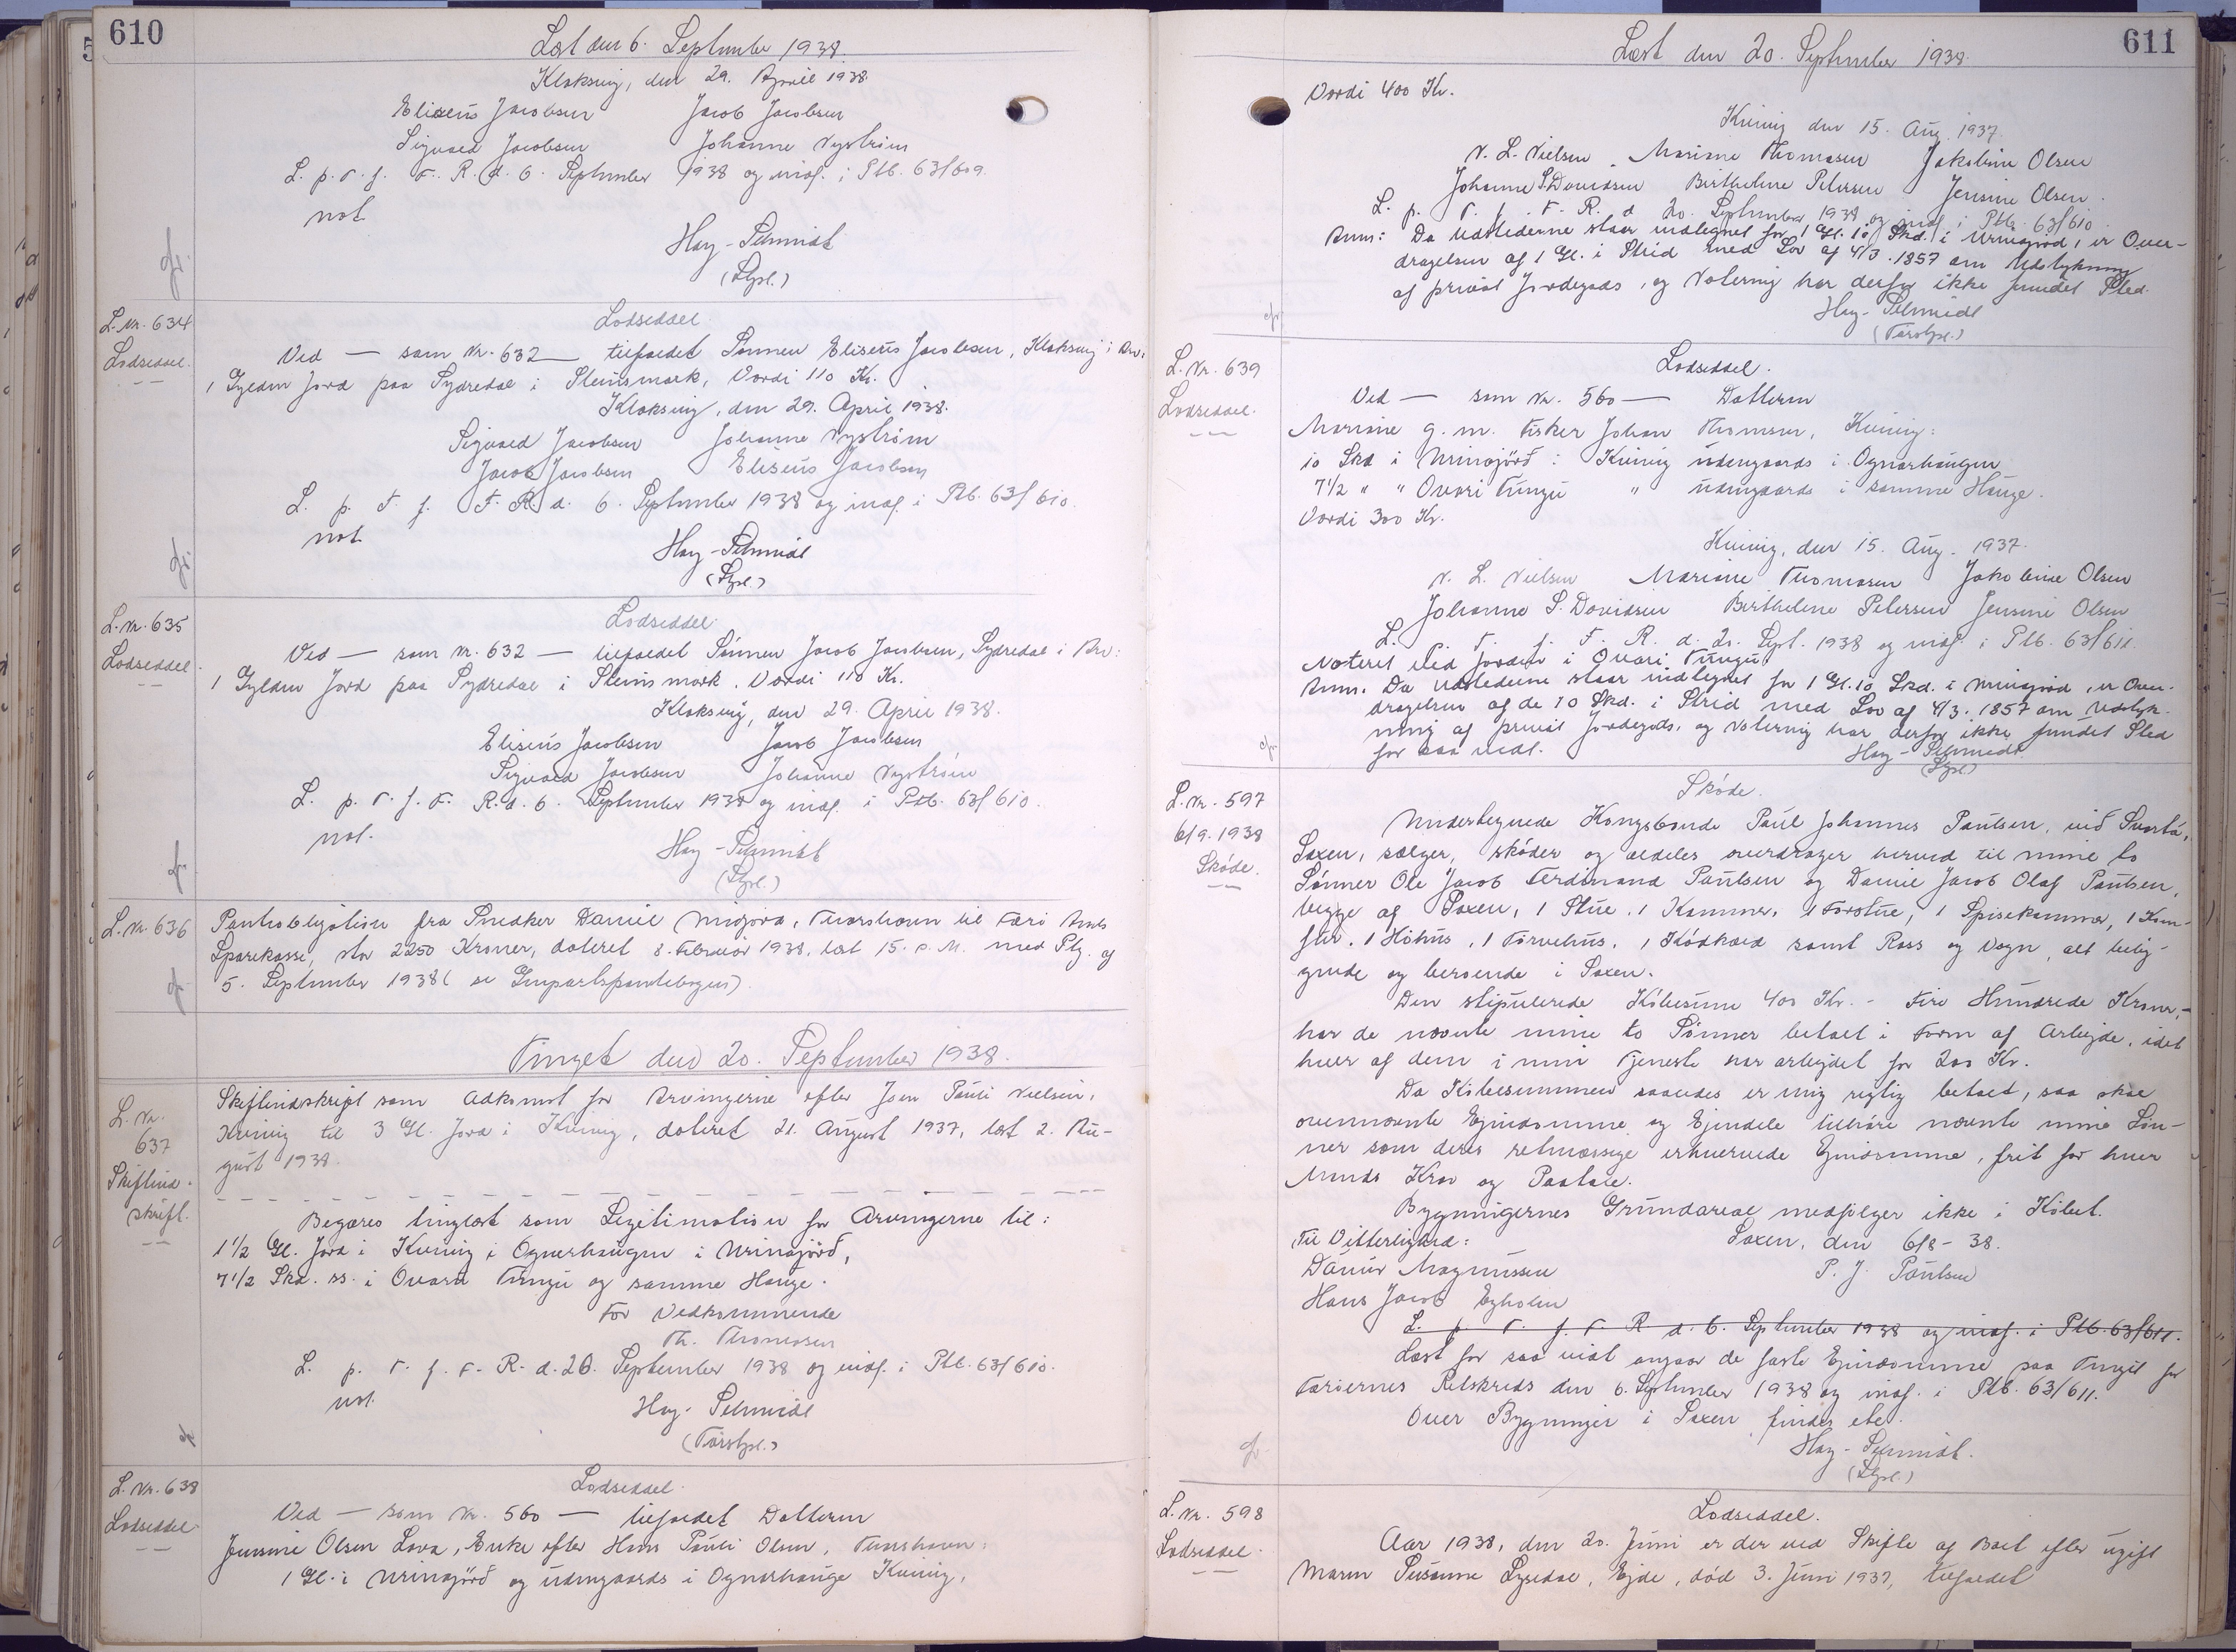 610
Læst den 6. September 1938.
Klaksvig, den 29. April 1938.
Eliseus Jacobsen Jacob Jacobsen
Sigvald Jacobsen Johanne Nyström
L. p. T. f. F. R. d. 6. September 1938 og indf. i Ptb. 63/609.
not.
Hay-Schmidt
L. Nr. 634
Lodseddel.
Lodseddel
Ved — som Nr. 632 — tilfaldet Sønnen Eliseus Jacobsen, Klaksvig
1 Gylden Jord paa Sydredal i Steinsmark, Værdi 110 Kr.
Klaksvig, den 29. April 1938.
Sigvald Jacobsen Johanne Nyström
Jacob Jacobsen Eliseus Jacobsen
L. p. T. f. F. R. d. 6. September 1938 og indf. i Ptb. 63/610.
not.
Hay-Schmidt
L. Nr. 635
Lodseddel.
Lodseddel.
Ved — som Nr. 632 — tilfaldet Sønnen Jacob Jacobsen, Sydredal i
1 Gylden Jord paa Sydredal i Steinsmark. Værdi 110 Kr.
Klaksvig, den 29. April 1938.
Eliseus Jacobsen Jacob Jacobsen
Sigvald Jacobsen Johanne Nyström
L. p. T. f. F. R. d. 6. September 1938 og indf. i Ptb. 63/610.
not.
Hay-Schmidt
L. Nr. 636
Pantobligation fra Snedker Daniel Niojørd, Thorshavn til Færø Amts
Sparekasse, stor 2250 Kroner, dateret 8. Februar 1938, læst 15. s. M. med Ptg. af
5. September 1938 (se Genpartspantebogen)
Tinget den 20. September 1938.
L. Nr.
637
Skifteud-
skrift.
Skifteudskrift som Adkomst for Arvingerne efter Joen Pauli Nielsen,
Kvivig til 3 Gl. Jord i Kvivig, dateret 21. August 1937, læst 2. Au-
gust 1938.
Begæres tinglæst som Legitimation for Arvingerne til:
1 1/2 Gl. Jord i Kvivig i Ognarhaugen i Urinsjörð,
7 1/2 Skd. ss. i Ovara Tungu og samme Hauge.
For Vedkommende
Th. Thomasen
L. p. T. f. F. R. d. 20. September 1938 og indf. i Ptb. 63/610.
not.
Hay-Schmidt
L. Nr. 638
Lodseddel.
Lodseddel.
Ved — som Nr. 560 — tilfaldet Datteren
Jensine Olsen Enke efter Hans Pauli Olsen, Thorshavn:
1 Gl. i Urinsjörð og udengaards i Ognarhauge Kvivig,
611
Læst den 20. September 1938.
Værdi 400 Kr.
Kvivig den 15. Aug. 1937.
N. L. Nielsen. Mariane Thomasen Jakobine Olsen
Johanne S. Davidsen Birthelene Petersen Jensine Olsen.
L. p. T. f. F. R. d. 20. September 1938 og indf. i Ptb. 63/610
Anm: Da Udstederne staar indtegnet for 1 Gl. 10 Skd. i Urinsjörð, er Over-
dragelsen af 1 Gl. i Strid med Lov af 4/3. 1857 om Udstykning
af privat Jordegods, og Notering har derfor ikke fundet Sted.
Hay-Schmidt
L. Nr. 639
Lodseddel.
Lodseddel.
Ved — som Nr. 560 — Datteren
Mariane g. m. Fisker Johan Thomsen, Kvivig:
10 Skd i Urinsjörð: Kvivig udengaards i Ognarhaugen
7 1/2 " " Ovari Tungu " udengaards i samme Hauge.
Værdi 300 Kr.
Kvivig, den 15. Aug. 1937.
N. L. Nielsen Mariane Thomasen Jakobine Olsen
Johanne S. Davidsen Birthelene Petersen Jensine Olsen
L. p. T. f. F. R. d. 20. Sept. 1938 og indf. i Ptb. 63/611.
Noteret Jorden i Ovari Tungu.
Anm. Da Udstederne staar indtegnet for 1 Gl. 10 Skd. i Urinsjörð, er Over-
dragelsen af de 10 Skd. i Strid med Lov af 4/3. 1857 om Udstyk-
ning af privat Jordegods, og Notering har derfor ikke fundet Sted
for saa vidt.
Hay-Schmidt
L. Nr. 597
6/9. 1938
Skøde.
Skøde.
Undertegnede Kongsbonde Paul Johannes Paulsen, við Svartá,
Saxen, sælger, skøder og aldeles overdrager herved til mine to
Sønner Ole Jacob Ferdinand Paulsen og Daniel Jacob Olaf Paulsen,
begge af Saxen, 1 Stue, 1 Kammer, 1 Forstue, 1 Spisekammer, 1 Kom-
fur, 1 Höhus, 1 Törvehus, 1 Ködkæld samt Ross og Vogn, alt belig-
gende og beroende i Saxen.
Den stipulerede Købesum 400 Kr. - Fire Hundrede Kroner,-
har de nævnte mine to Sønner betalt i Form af Arbejde, idet
hver af dem i min Tjeneste har arbejdet for 200 Kr.
Da Købesummen saaledes er mig rigtig betalt, saa skal
ovennævnte Ejendomme og Ejendele tilhøre nævnte mine Søn-
ner som deres retmæssige erhvervede Ejendomme, frit for hver
Mands Krav og Paatale.
Bygningernes Grundareal medfølger ikke i Købet.
Til Vitterlighed: Saxen, den 6/8 - 38.
Daniur Magnussen P. J. Paulsen
Hans Jacob Egholm
L. p. T. f. F. R d. 6. September 1938 og indf. i Ptb. 63/611.
Læst for saa vidt angaar de faste Ejendomme paa Tinget for
Færøernes Retskreds den 6. September 1938 og indf. i Ptb. 63/611.
Over Bygninger i Saxen findes
Hay-Schmidt.
L. Nr. 598
Lodseddel.
Lodseddel.
Aar 1938, den 20. Juni er der ved Skifte af Boet efter ugift
Maren Susanne Lysedal, Ejde, død 3. Juni 1937, tilfaldet